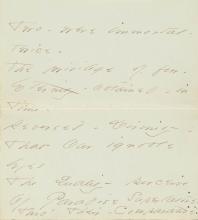 Two - were immortal -
twice -
The privilege of few -
Eternity - obtained - in
Time -
Reversed - Divinity -
That our ignoble
Eyes
The quality - perceive
Of Paradise Superlative -
Their Comparative